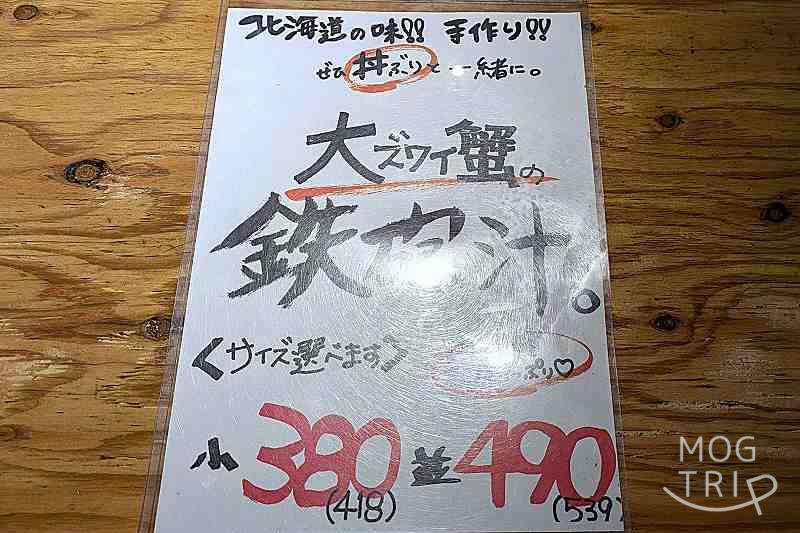 北海道の味!! 手作り!!
ぜひ丼ぶりと一緒に。
大ズワイ蟹の
鉄砲汁。
<サイズ選べます>
ポリ♡
小 380 並 490
(418) (539)
MOG
TRIP